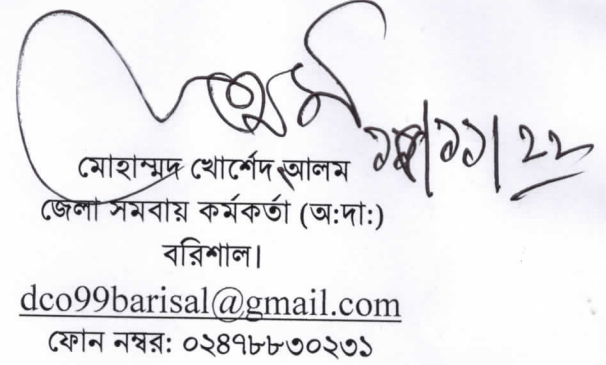 মোহাম্মদ খোর্শেদ আলম
জেলা সমবায় কর্মকর্তা (অ:দা:)
বরিশাল।
dco99barisal@gmail.com
ফোন নম্বর: ০২৪৭৮৮৩০২৩১